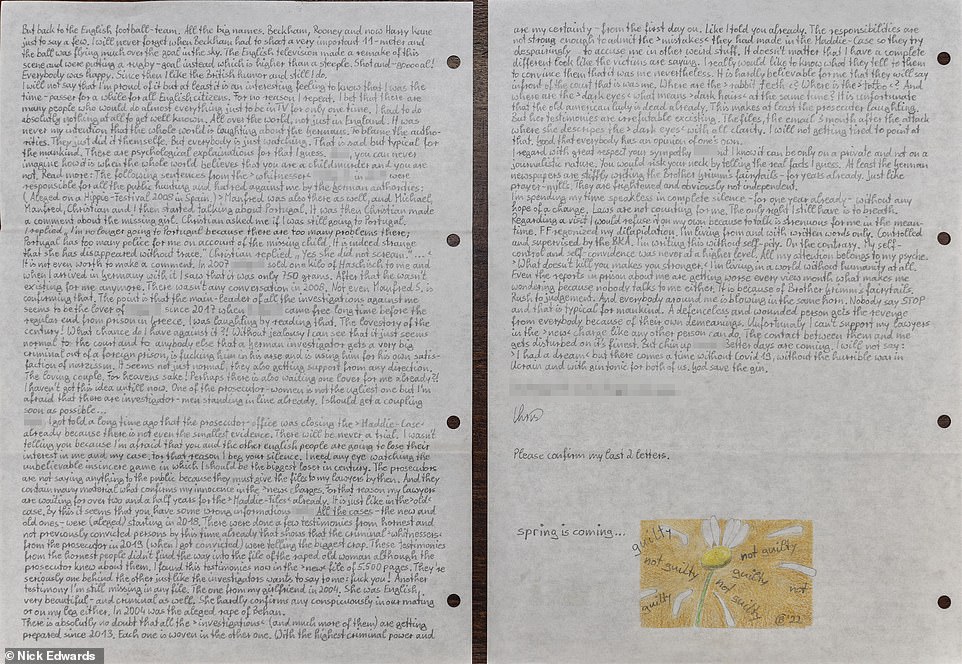 But back to the English football-team. All the big names. Beckham, Rooney and now Harry Kane
just to say a few. I will never forget when Beckham had to shoot a very important 11-meter and
the ball was flying much over the goal in the sky. The English television made a remake of this
scene and were putting a rugby-goal instead which is higher than a steeple. Shot and-goooooal!
Everybody was happy. Since then I like the British humor and still do.
I will not say that I'm proud of it but at least it is an interesting feeling to know that I was the
time-passer for a while for all English citizens. For no reason, I repeat. I bet that there are
many people who would do almost everything just to be in TV for only one time. I had to do
absolutely nothing at all to get well known. All over the world, not just in England. It was
never my intention that the whole world is laughing about the Germans. To blame the autho-
rities. They just did it themself. But everybody is just watching. That is sad but typical for
the mankind. There are psychological explainations for that I guess. you can never
imagine how it is when the whole world believes that you are a childmurder and you are
not. Read more: The following sentences from the >whitnesser< in were
responsible for all the public hunting and hatred against me by the german authorities:
(Aleged on a Hippie-Festival 2008 in Spain.) >Manfred was also there as well, and Michael,
Manfred, Christian and I then started talking about Portugal. It was then Christian made
a comment about the missing girl. Christian asked me if I was still going to Portugal.
I replied, "I'm no longer going to Portugal because there are too many problems there;
Portugal has too many police for me on account of the missing child. It is indeed strange
that she has disappeared without trace." Christian replied, "Yes she did not scream."...<
It is not even worth to make a comment. In 2007 sold one kilo of Haschisch to me and
when I arrived in Germany with it I saw that is was only 750 grams. After that he wasn't
existing for me anymore. There wasn't any conversation in 2008. Not even Manfred S. is
confirming that. The point is that the main-leader of all the investigations against me
seems to be the lover of since 2017 when came free long time before the
regular end from prison in Greece. I was laughing by reading that. The lovestory of the
century! What chance do I have against it?! Without jealousy I can see that it just seems
normal to the court and to anybody else that a german investigator gets a very big
criminal out of a foreign prison, is fucking him in his arse and is using him for his own satis-
faction of narzissm. It seems not just normal, they also getting support from any direction.
The loving couple. For heavens sake! Perhaps there is also waiting one lover for me already?!
I haven't got this idea untill now. One of the prosecutor-women is not the ugliest one but I'm
afraid that there are investigator-men standing in line already. I should get a coupling
soon as possible...
I got told a long time ago that the prosecutor-office was closing the >Maddie-Case<
already because there is not even the smallest evidence. There will be never a trial. I wasn't
telling you because I'm afraid that you and the other english people are going to lose their
interest in me and my case, for that reason I beg your silence. I need any eye watching the
unbelievable insincere game in which I should be the biggest loser in century. The prosecutors
are not saying anything to the public because they must give the files to my lawyers by then. And they
contain many material what confirms my innocence in the >new charges<. For that reason my lawyers
are waiting for over two and a half years for the >Maddie-Files< already. It is just like in the >old<
case, by this it seems that you have some wrong informations All the cases-the new and
old ones-were (aleged) starting in 2013. There were done a few testimonies from hornest and
not previously convicted persons by this time already that shows that the criminal >whitnesser<
from the prosecutor in 2019 (when I got convicted) were telling the biggest crap. These testimonies
from the hornest people didn't find the way into the file of the raped old woman although the
prosecutor knew about them. I found this testimonies now in the >new file of 5.500 pages. They're
seriously one behind the other just like the investigators wants to say to me: fuck you! Another
testimony I'm still missing in any file. The one from my girlfriend in 2004. She was English,
very beautiful-and criminal as well. She hardly confirms any conspicuously in our mating
or on my leg either. In 2004 was the aleged rape of Behan.
There is absolutly no doubt that all the >investigations< (and much more of them) are getting
prepared since 2013. Each one is woven in the other one. With the highest criminal power and
are my certainity-from the first day on. Like I told you already. The responsibilities are
not strong enough to admit the >mistakes< they had made in the Maddie-Case so they try
despairingly-to accuse me in other weird stuff. It doesn't matter that I have a complete
different look like the victims are saying. I really would like to know what they tell to them
to convince them that it was me nevertheless. It is hardly believable for me that they will say
infront of the court that is was me. Where are the >rabbit teeth<? Where is the >tattoo<? And
where are the >dark eyes< what means >dark hairs< at the same time? It is unfortunate
that the old american lady is dead already. This makes at least the prosecuter laughting.
But her testimonies are irrefutable excisting. The files, the email 3 month after the attack
where she describes the >dark eyes< with all clarity. I will not getting tired to point at
that. Good that everybody has an opinion of one's own.
I regard with great respect your sympathy but I know it can be only on a private and not on a
journalistic nature. You would risk your neck by telling the real facts I guess. At least the German
newspapers are stiffly writing the Brother grimm's fairytails-for years already. Just like
prayer-mills. They are frightened and obviously not independent.
I'm spending my time speakless in complete silence-for one year already-without any
hope of a change. Laws are not counting for me. The only right I still have is to breath.
Regarding a visit I would refuse for my own because to talk is strenuous for me in the mean-
time. FF regonized my dilapidation. I'm living from and with written words only. Controlled
and supervised by the BKA. I'm writing this without self-pity. On the contrary. My self-
control and self-confidence was never at a higher level. All my attention belongs to my psyche.
>What doesn't kill you makes you stronger.< I'm living in a world without humanity at all.
Even the reports in prison about me are getting worse every vives month what makes me
wondering because nobody talks to me either. It is because of Brother grimm's fairytails.
Rush to judgement. And everybody around me is blowing in the same horn. Nobody say STOP
and that is typical for mankind. A defenceless and wounded person gets the revenge
from everybody because of their own demeanings. Unfortunatly I can't support my lawyers
in the >new< charge like any other person can do. The contact between them and me
gets disturbed on it's finest. But chin up Better days are coming. I will not say:
>I had a dream< but there comes a time without Covid 19, without the horrible war in
Ucrain and with gin tonic for both of us. God save the gin.
Chris
Please confirm my last 2 letters.
spring is coming...
guilty
not guilty
not guilty
guilty
not guilty
guilty
not
CB '22
© Nick Edwards